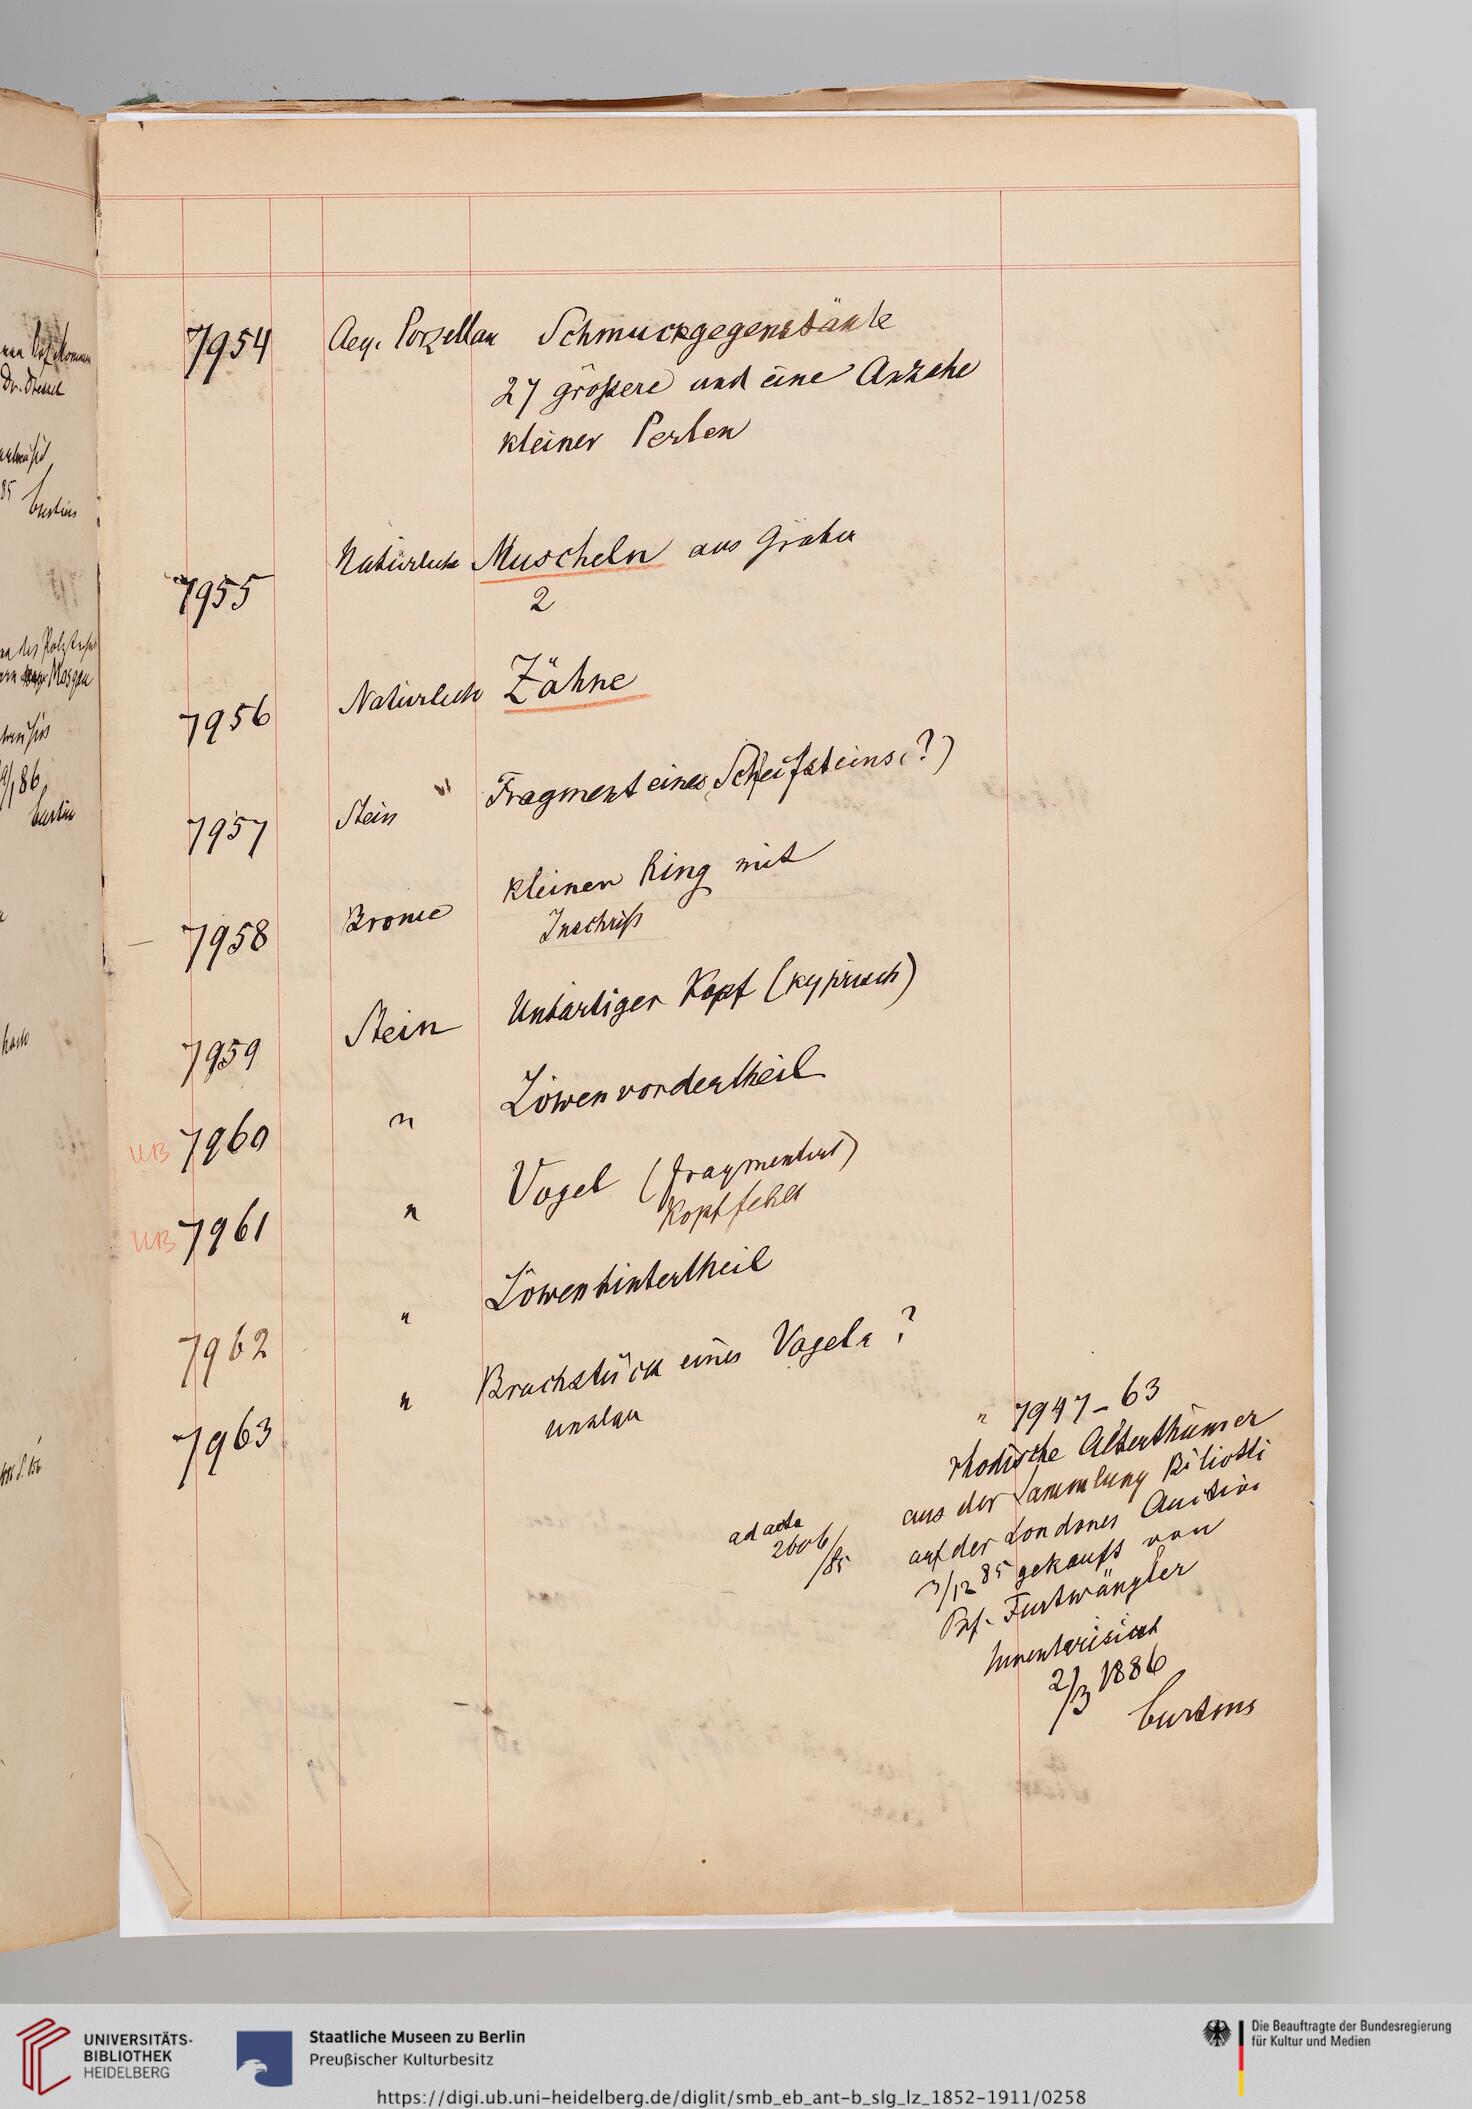 7954 Aeg. Porzellan Schmuckgegenstände
27 größere und eine Anzahl
kleiner Perlen
7955 Natürliche Muscheln aus Gräber
2
7956 Natürlich Zähne
7957 Stein Fragment eines Schleifsteins (?)
7958 Bronze kleiner Ring mit
Inschrift
7959 Stein Unbärtiger Kopf (kyprisch)
UB 7960 " Löwenvordertheil
UB 7961 " Vogel (fragmentirt)
Kopf fehlt
7962 " Löwenhintertheil
7963 " Bruchstück eines Vogels ?
unklar
" 7947-63
rhodische Alterthümer
aus der Sammlung Biliotti
auf der Londoner Auction
3/12 85 gekauft von
Prf. Furtwängler
Inventarisirt
2/3 1886
Curtius
ad acta
2606/
/85
Dr.
85 Curtius
des
/186
Curtius
UNIVERSITÄTS-
BIBLIOTHEK
HEIDELBERG
Staatliche Museen zu Berlin
Preußischer Kulturbesitz
Die Beauftragte der Bundesregierung
für Kultur und Medien
https://digi.ub.uni-heidelberg.de/diglit/smb_eb_ant-b_slg_lz_1852-1911/0258